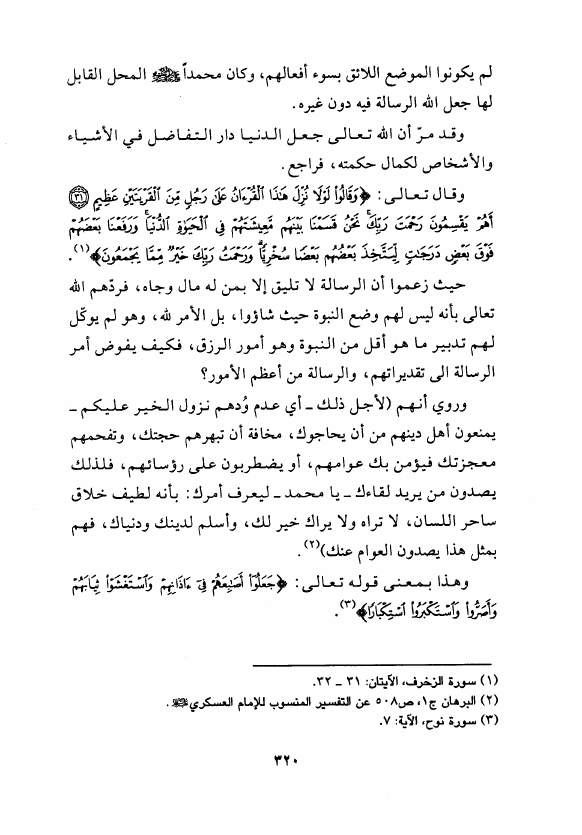 لم يكونوا الموضع اللائق بسوء أفعالهم، وكان محمداً ﷺ المحل القابل
لها جعل الله الرسالة فيه دون غيره.
وقد مرّ أن الله تعالى جعل الدنيا دار التفاضل في الأشياء
والأشخاص لكمال حكمته، فراجع.
وقال تعالى: ﴿وَقَالُوا۟ لَوْلَا نُزِّلَ هَٰذَا ٱلْقُرْءَانُ عَلَىٰ رَجُلٍ مِّنَ ٱلْقَرْيَتَيْنِ عَظِيمٍ ٣١
أَهُمْ يَقْسِمُونَ رَحْمَتَ رَبِّكَ ۚ نَحْنُ قَسَمْنَا بَيْنَهُم مَّعِيشَتَهُمْ فِى ٱلْحَيَوٰةِ ٱلدُّنْيَا ۚ وَرَفَعْنَا بَعْضَهُمْ
فَوْقَ بَعْضٍ دَرَجَٰتٍ لِّيَتَّخِذَ بَعْضُهُم بَعْضًا سُخْرِيًّا ۗ وَرَحْمَتُ رَبِّكَ خَيْرٌ مِّمَّا يَجْمَعُونَ﴾(١).
حيث زعموا أن الرسالة لا تليق إلا بمن له مال وجاه، فردّهم الله
تعالى بأنه ليس لهم وضع النبوة حيث شاؤوا، بل الأمر لله، وهو لم يوكّل
لهم تدبير ما هو أقل من النبوة وهو أمور الرزق، فكيف يفوض أمر
الرسالة الى تقديراتهم، والرسالة من أعظم الأمور؟
وروي أنهم (لأجل ذلك ـ أي عدم وُدهم نزول الخير عليكم ـ
يمنعون أهل دينهم من أن يحاجوك، مخافة أن تبهرهم حجتك، وتفحمهم
معجزتك فيؤمن بك عوامهم، أو يضطربون على رؤسائهم، فلذلك
يصدون من يريد لقاءك ـ يا محمد ـ ليعرف أمرك: بأنه لطيف خلاق
ساحر اللسان، لا تراه ولا يراك خير لك، وأسلم لدينك ودنياك، فهم
بمثل هذا يصدون العوام عنك)(٢).
وهذا بمعنى قوله تعالى: ﴿جَعَلُوٓا۟ أَصَٰبِعَهُمْ فِىٓ ءَاذَانِهِمْ وَٱسْتَغْشَوْا۟ ثِيَابَهُمْ
وَأَصَرُّوا۟ وَٱسْتَكْبَرُوا۟ ٱسْتِكْبَارًا﴾(٣).
(١) سورة الزخرف، الآيتان: ٣١ ـ ٣٢.
(٢) البرهان ج١، ص٥٠٨ عن التفسير المنسوب للإمام العسكري.
(٣) سورة نوح، الآية: ٧.
٣٢٠